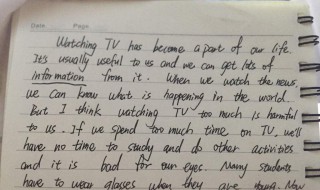 Date Page
Watching TV has become a part of our life.
It's usually useful to us and we can get lots of
information from it. When we watch the news,
we can know what is happening in the world.
But I think watching TV too much is harmful
to us. If we spend too much time on TV, we'll
have no time to study and do other activities
and it is bad for our eyes. Many students
have to wear glasses when they are young. Now